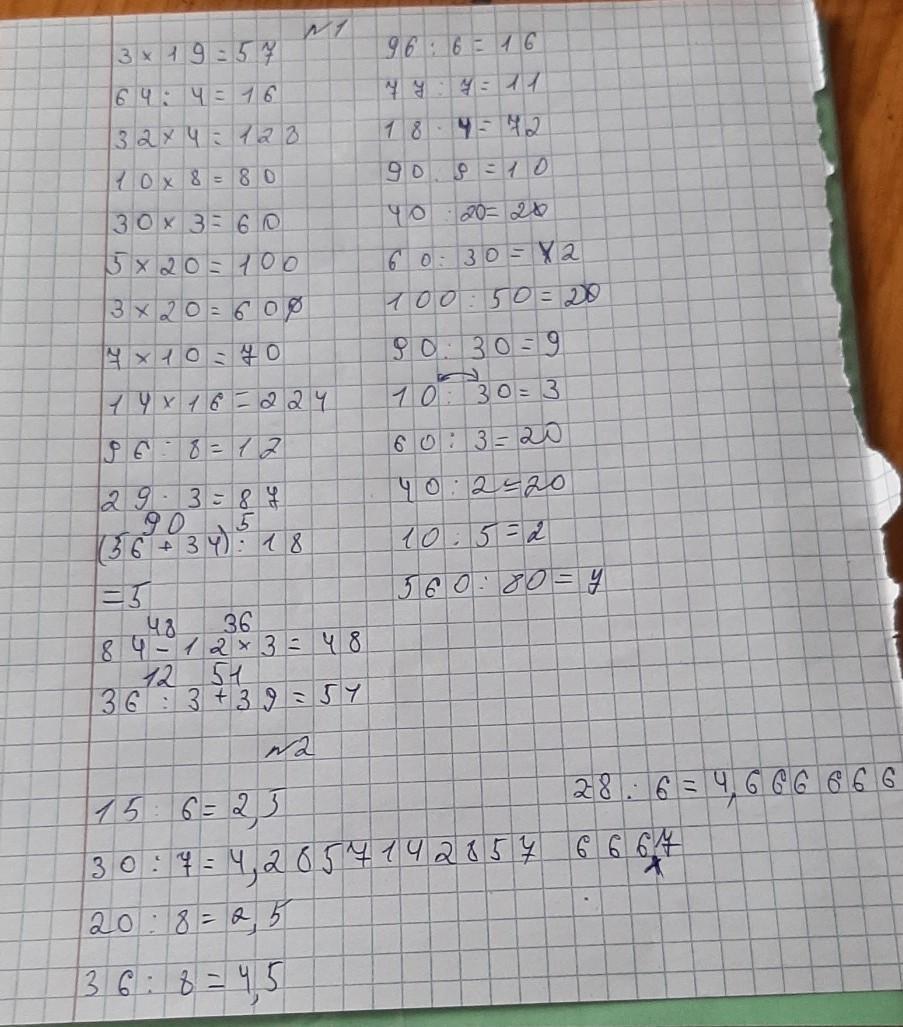 №1
3 × 19 = 57
64 : 4 = 16
32 × 4 = 128
10 × 8 = 80
30 × 3 = 60
5 × 20 = 100
3 × 20 = 600
7 × 10 = 70
14 × 16 = 224
96 : 8 = 12
29 · 3 = 87
90 5
(56 + 34) : 18
= 5
48 36
84 - 12 × 3 = 48
12 51
36 : 3 + 39 = 51
96 : 6 = 16
77 : 7 = 11
18 · 4 = 72
90 : 9 = 10
40 : 20 = 20
60 : 30 = 2
100 : 50 = 20
90 : 30 = 9
10 : 30 = 3
60 : 3 = 20
40 : 2 = 20
10 : 5 = 2
560 : 80 = 7
№2
15 : 6 = 2,5
30 : 7 = 4,2857142857
20 : 8 = 2,5
36 : 8 = 4,5
28 : 6 = 4,666666
6667